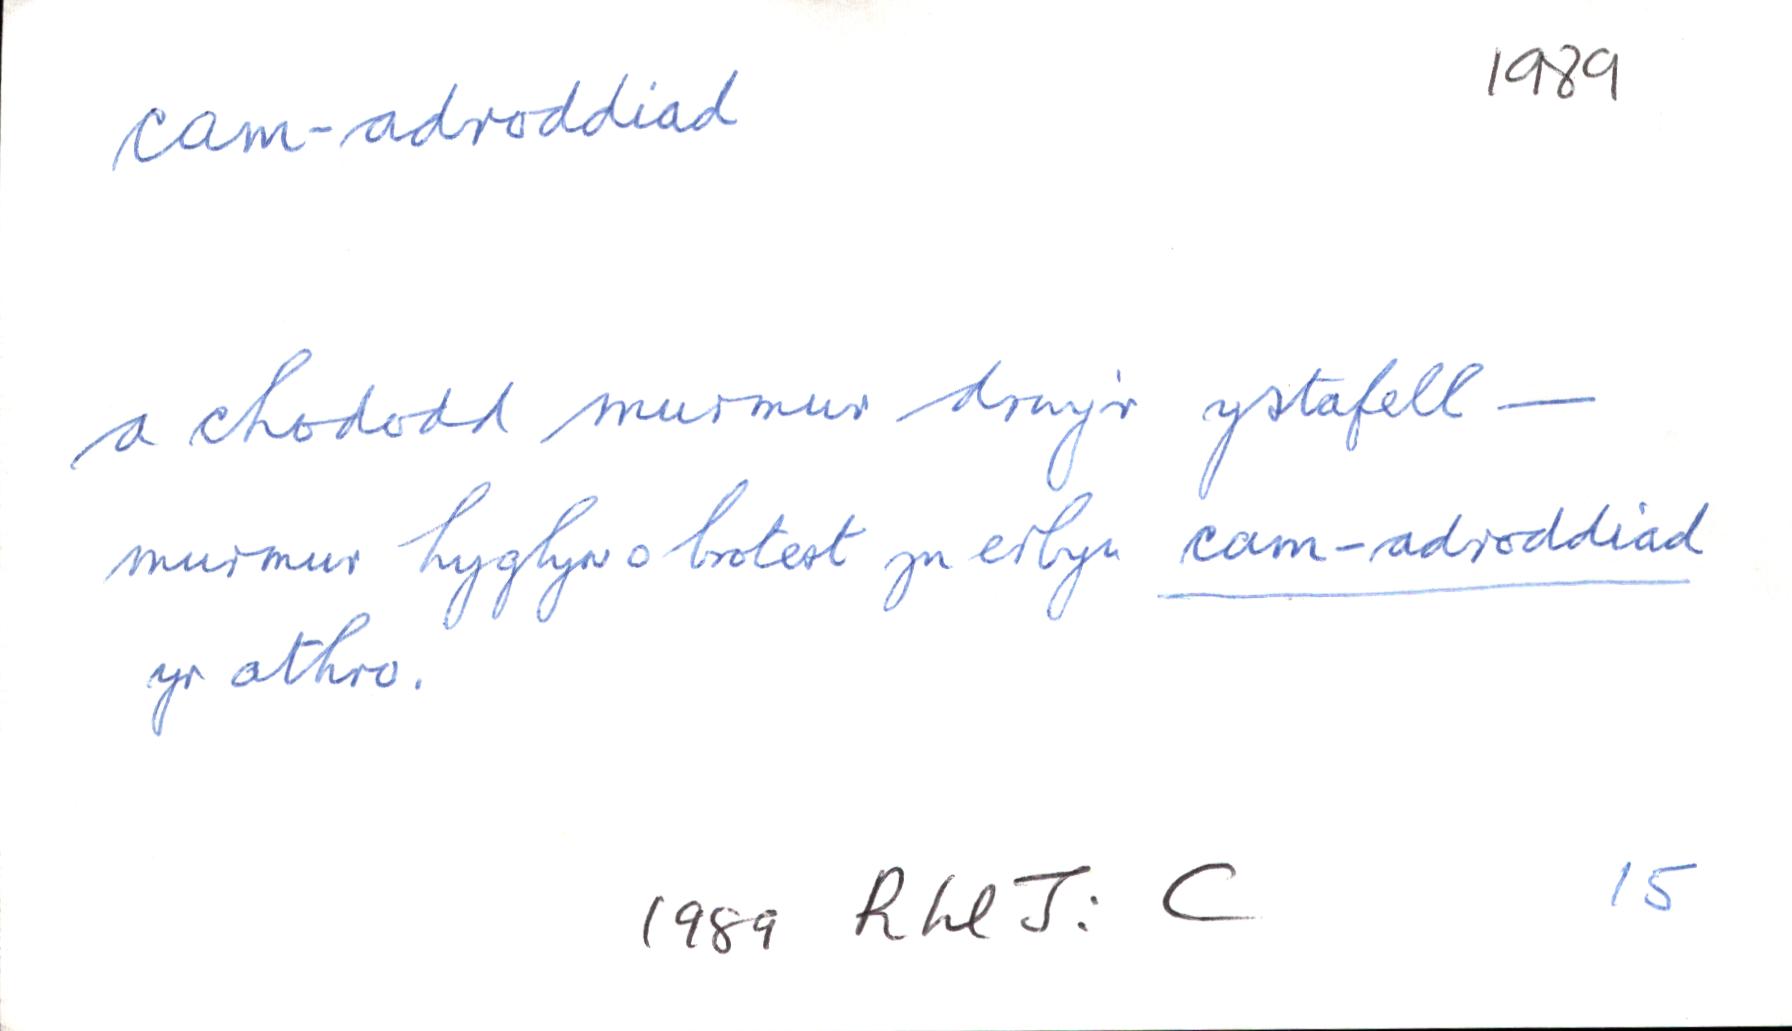 cam-adroddiad 1989
a chododd murmur drwy'r ystafell —
murmur hyglyw o brotest yn erbyn cam-adroddiad
yr athro.
1989 RhLJ: C 15